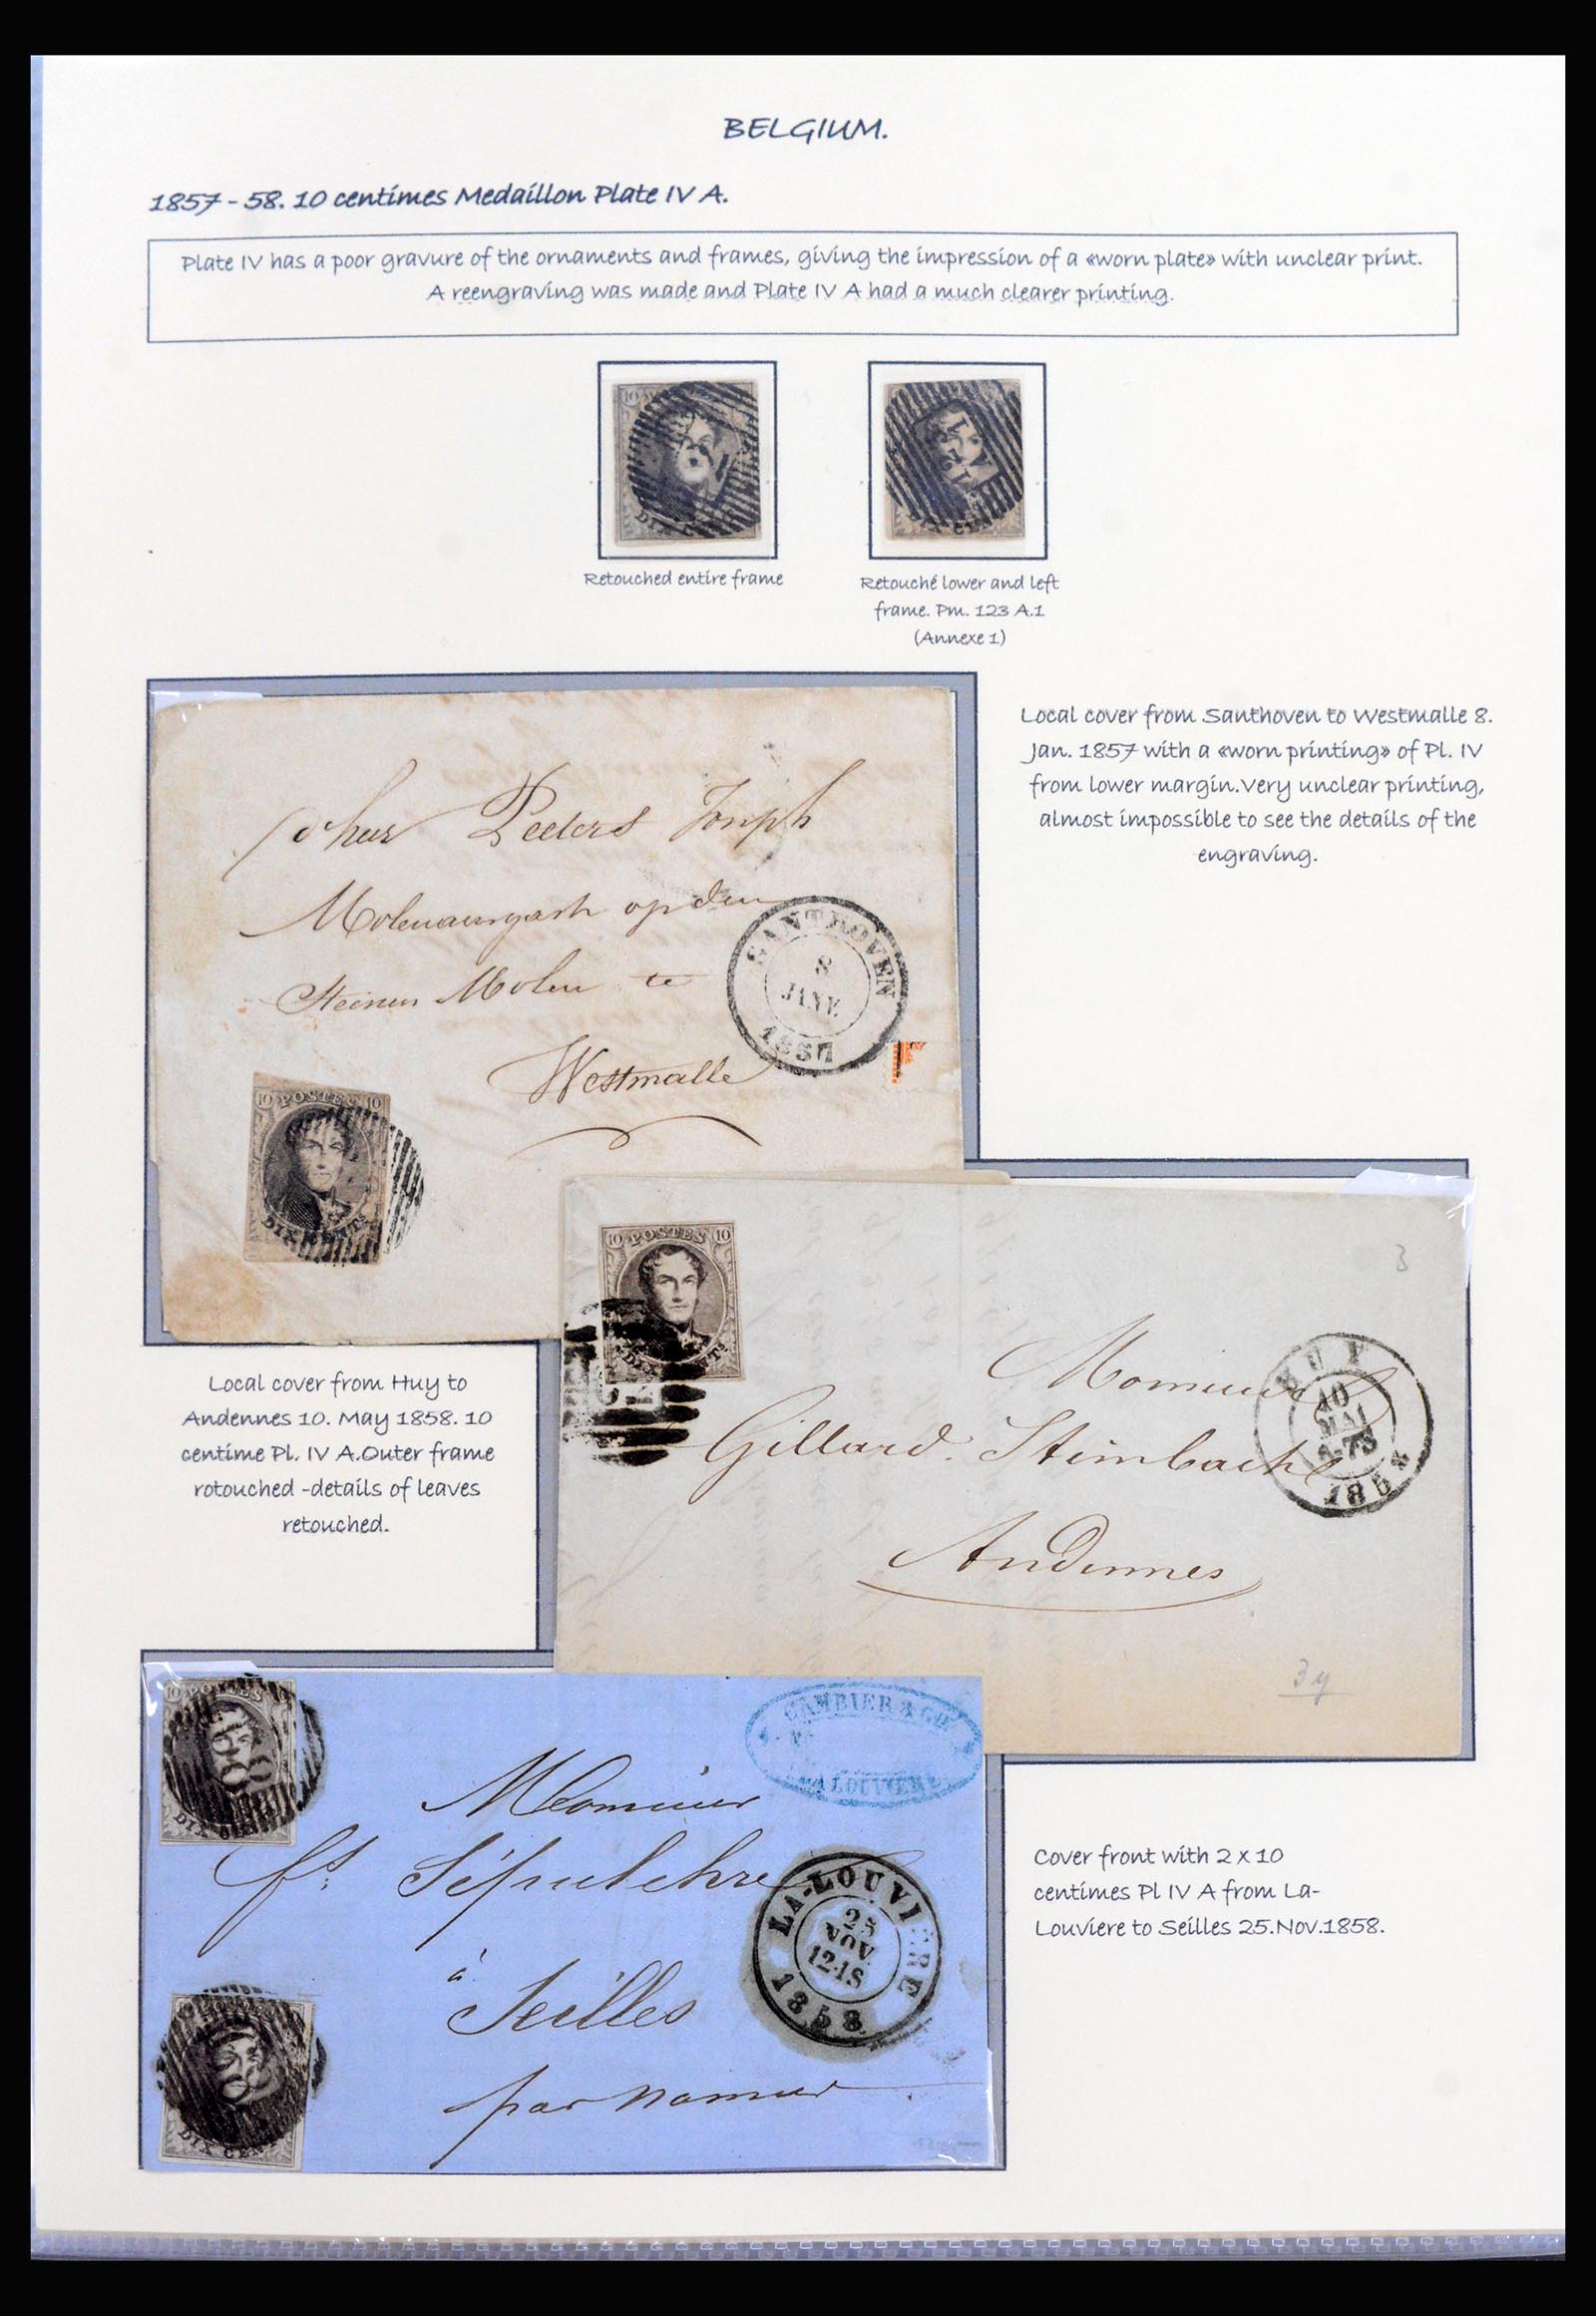 BELGIUM.
1857 - 58. 10 centimes Medaillon Plate IV A.
Plate IV has a poor gravure of the ornaments and frames, giving the impression of a «worn plate» with unclear print.
A reengraving was made and Plate IV A had a much clearer printing.
10
DIX C
10
Retouched entire frame
Retouché lower and left
frame. Pm. 123 A.1
(Annexe 1)
Local cover from Santhoven to Westmalle 8.
Jan. 1857 with a «worn printing» of Pl. IV
from lower margin. Very unclear printing,
almost impossible to see the details of the
engraving.
Peeters Joseph
op den
Steinen Molen te
Westmalle
SANTHOVEN
8
JANV.
1857
10 POSTES 10
DIX CENTS
Local cover from Huy to
Andennes 10. May 1858. 10
centime Pl. IV A. Outer frame
rotouched - details of leaves
retouched.
10 POSTES 10
DIX CENTS
3
Monsieur
Gillard. Steinbach
Andennes
HUY
10
MAI
1858
3y
10 POSTES
DIX CENTS
CAMBIER & CO
LA LOUVIERE
Monsieur
fs: Sépulchre
à
Seilles
par Namur
LA-LOUVIERE
25
NOV
12-1S
1858
DIX CENT
Cover front with 2 x 10
centimes Pl IV A from La-
Louviere to Seilles 25.Nov.1858.